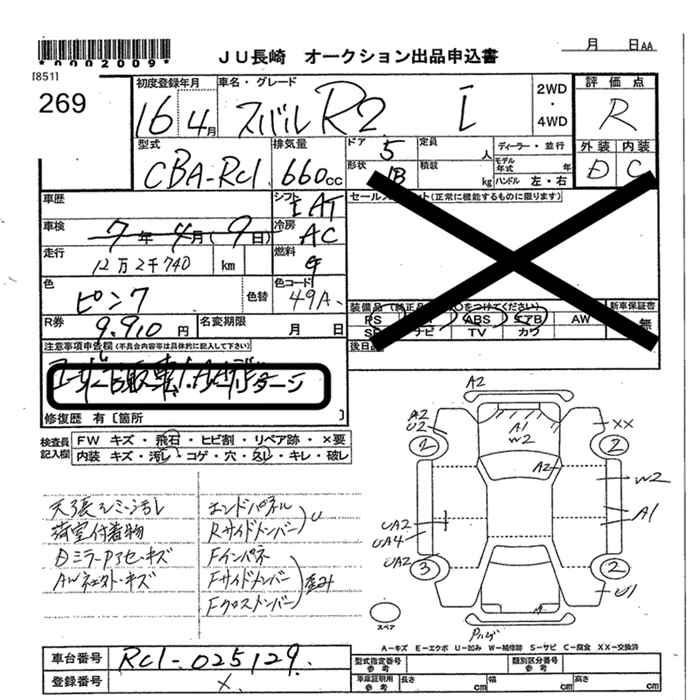 *0002009*
JU長崎 オークション出品申込書
月 日AA
[851]
269
初度登録年月
16 4月
車名・グレード
スバル R2 I
2WD
・
4WD
評価点
R
型式
CBA-RC1
排気量
660cc
ドア
5
定員
人
ディーラー・並行
外装 内装
D C
形状
1B
積載
kg
モデル年式
年
ハンドル 左・右
車歴
シフト
AT
セールスポイント(正常に機能するものに限ります)
車検
7年4月(9日)
冷房
AC
走行
12万2千740 km
燃料
G
色
ピンク
色替
色コード
49A
装備品(純正品
○をつけてください)
新車保証書
PS
ABS
エアB
AW
無
ナビ
TV
カワ
R券
9.910円
名変期限
月 日
後日
注意事項申告欄(不具合内容等は具体的に記入して下さい)
修復歴 有[箇所 ]
検査員
記入欄
FW キズ・飛石・ヒビ割・リペア跡・×要
内装 キズ・汚し・コゲ・穴・スレ・キレ・破し
天張シミ・汚レ
荷室付着物
DミラーPアセ・キズ
エンドパネル
RサイドメンバーU
Fインパネ
Fサイドメンバー
Fクロスメンバー
歪み
A2
A2
U2
2
A1
W2
XX
2
A2
W2
A1
UA2
UA4
UA2
3
2
U1
A
スペア
A-キズ E-エクボ U-凹み W-補修跡 S-サビ C-腐食 XX-交換済
車台番号
RC1-025129
型式指定番号
参考
類別区分番号
参考
登録番号
×
車庫証明用
参考
長さ cm
幅 cm
高さ cm